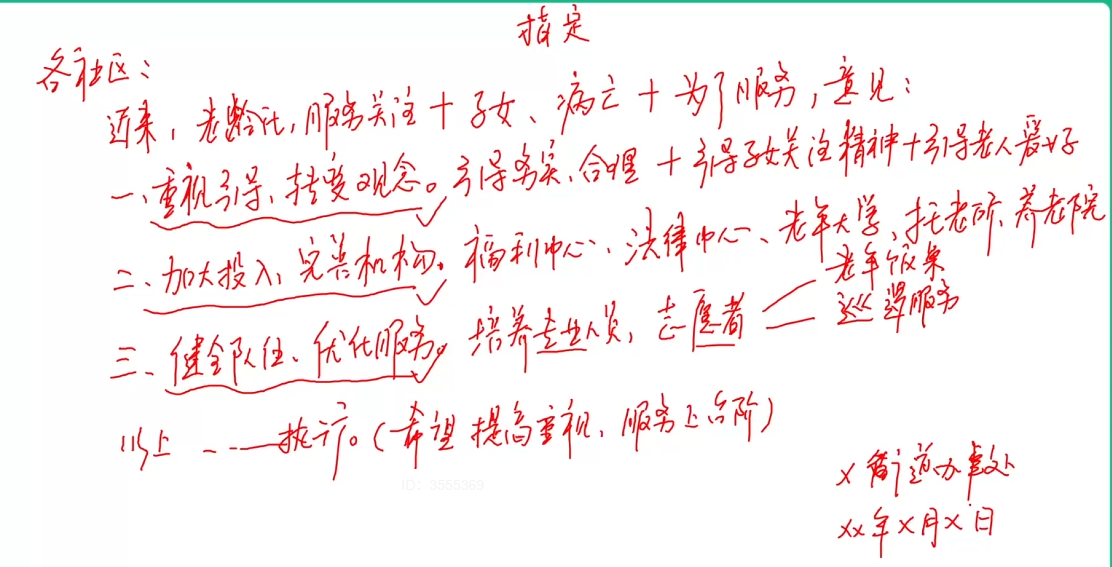 指定
各社区：
近来，老龄化，服务关注+子女、病亡+为了服务，意见：
一、重视引导、转变观念。引导务实、合理+引导子女关注精神+引导老人爱好
二、加大投入、完善机构。福利中心、法律中心、老年大学、托老所、养老院
老年饭桌
三、健全队伍、优化服务。培养专业人员，志愿者
巡逻服务
以上……执行。(希望提高重视、服务上台阶)
ID：3555369
X街道办事处
XX年X月X日